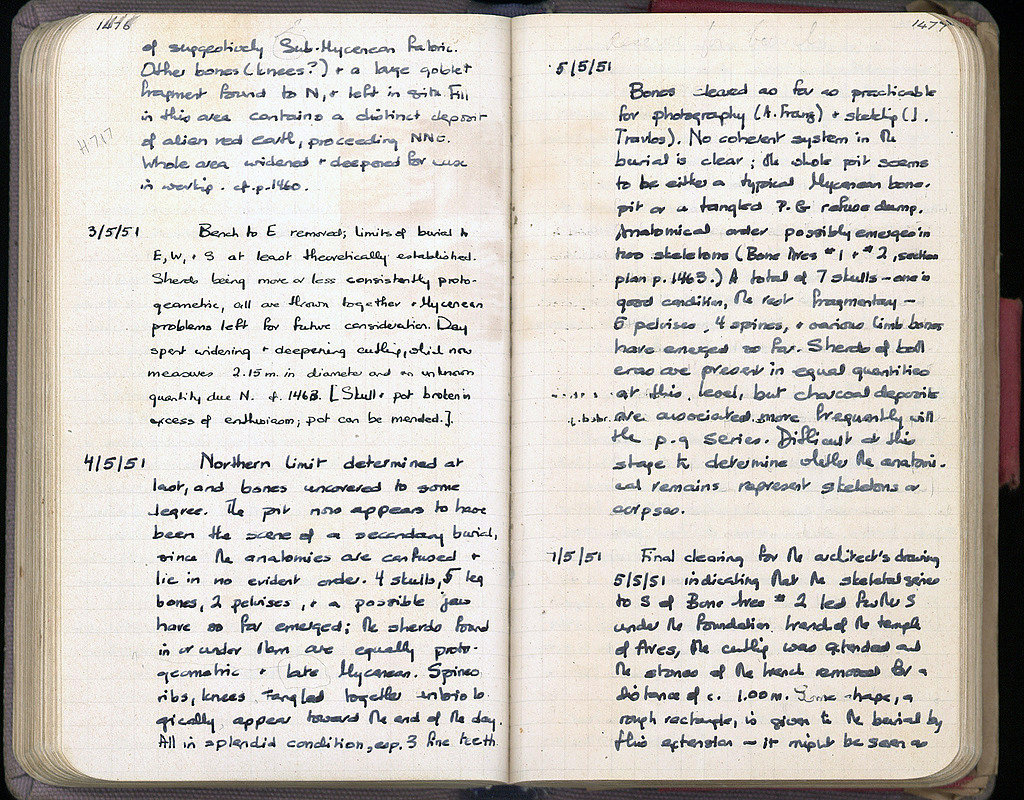 1476
of suggestively Sub-Mycenean fabric.
Other bones (knees?) + a large goblet
fragment found to N, + left in situ. Fill
in this area contains a distinct deposit
of alien red earth, proceeding NNE.
Whole area widened + deepened for ease
in working. cf. p. 1460.
H-717
3/5/51 Bench to E removed; limits of burial to
E, W, + S at least theoretically established.
Sherds being more or less consistently proto-
geometric, all are thrown together + Mycenean
problems left for future consideration. Day
spent widening + deepening cutting, which now
measures 2.15 m. in diameter and an unknown
quantity due N. cf. 1463. [Skull + pot broken in
excess of enthusiasm; pot can be mended.].
4/5/51 Northern limit determined at
last, and bones uncovered to some
degree. The pit now appears to have
been the scene of a secondary burial,
since the anatomies are confused +
lie in no evident order. 4 skulls, 5 leg
bones, 2 pelvises, + a possible jaw
have so far emerged; the sherds found
in or under them are equally proto-
geometric + late Mycenean. Spines
ribs, knees tangled together unbiolo-
gically, appear toward the end of the day.
All in splendid condition, esp. 3 fine teeth.
1477
5/5/51
Bones cleared as far as practicable
for photography (A. Frantz) + sketching (J.
Travlos). No coherent system in the
burial is clear; the whole pit seems
to be either a typical Mycenean bone-
pit or a tangled P.G refuse dump.
Anatomical order possibly emerges in
two skeletons (Bone Area #1 + #2, section
plan p. 1463.) A total of 7 skulls - one in
good condition, the rest fragmentary -
5 pelvises, 4 spines, + various limb bones
have emerged so far. Sherds of both
eras are present in equal quantities
at this level, but charcoal deposits
are associated more frequently with
the p.g series. Difficult at this
stage to determine whether the anatomi-
cal remains represent skeletons or
corpses.
7/5/51 Final clearing for the architect's drawing
5/5/51 indicating that the skeletal series
to S of Bone Area #2 led further S
under the foundation trench of the temple
of Ares, the cutting was extended and
the stones of the trench removed for a
distance of c. 1.00 m. Some shape, a
rough rectangle, is given to the burial by
this extension - it might be seen as